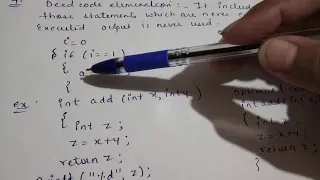 Dead code elimination :- It includ
those statements which are never e
Executed output is never used.
i=0
if (i==1)
{
}
ex. int add (int x, int y)
{
int z;
z=x+y;
return z;
Optimised co
int
{
retur
}